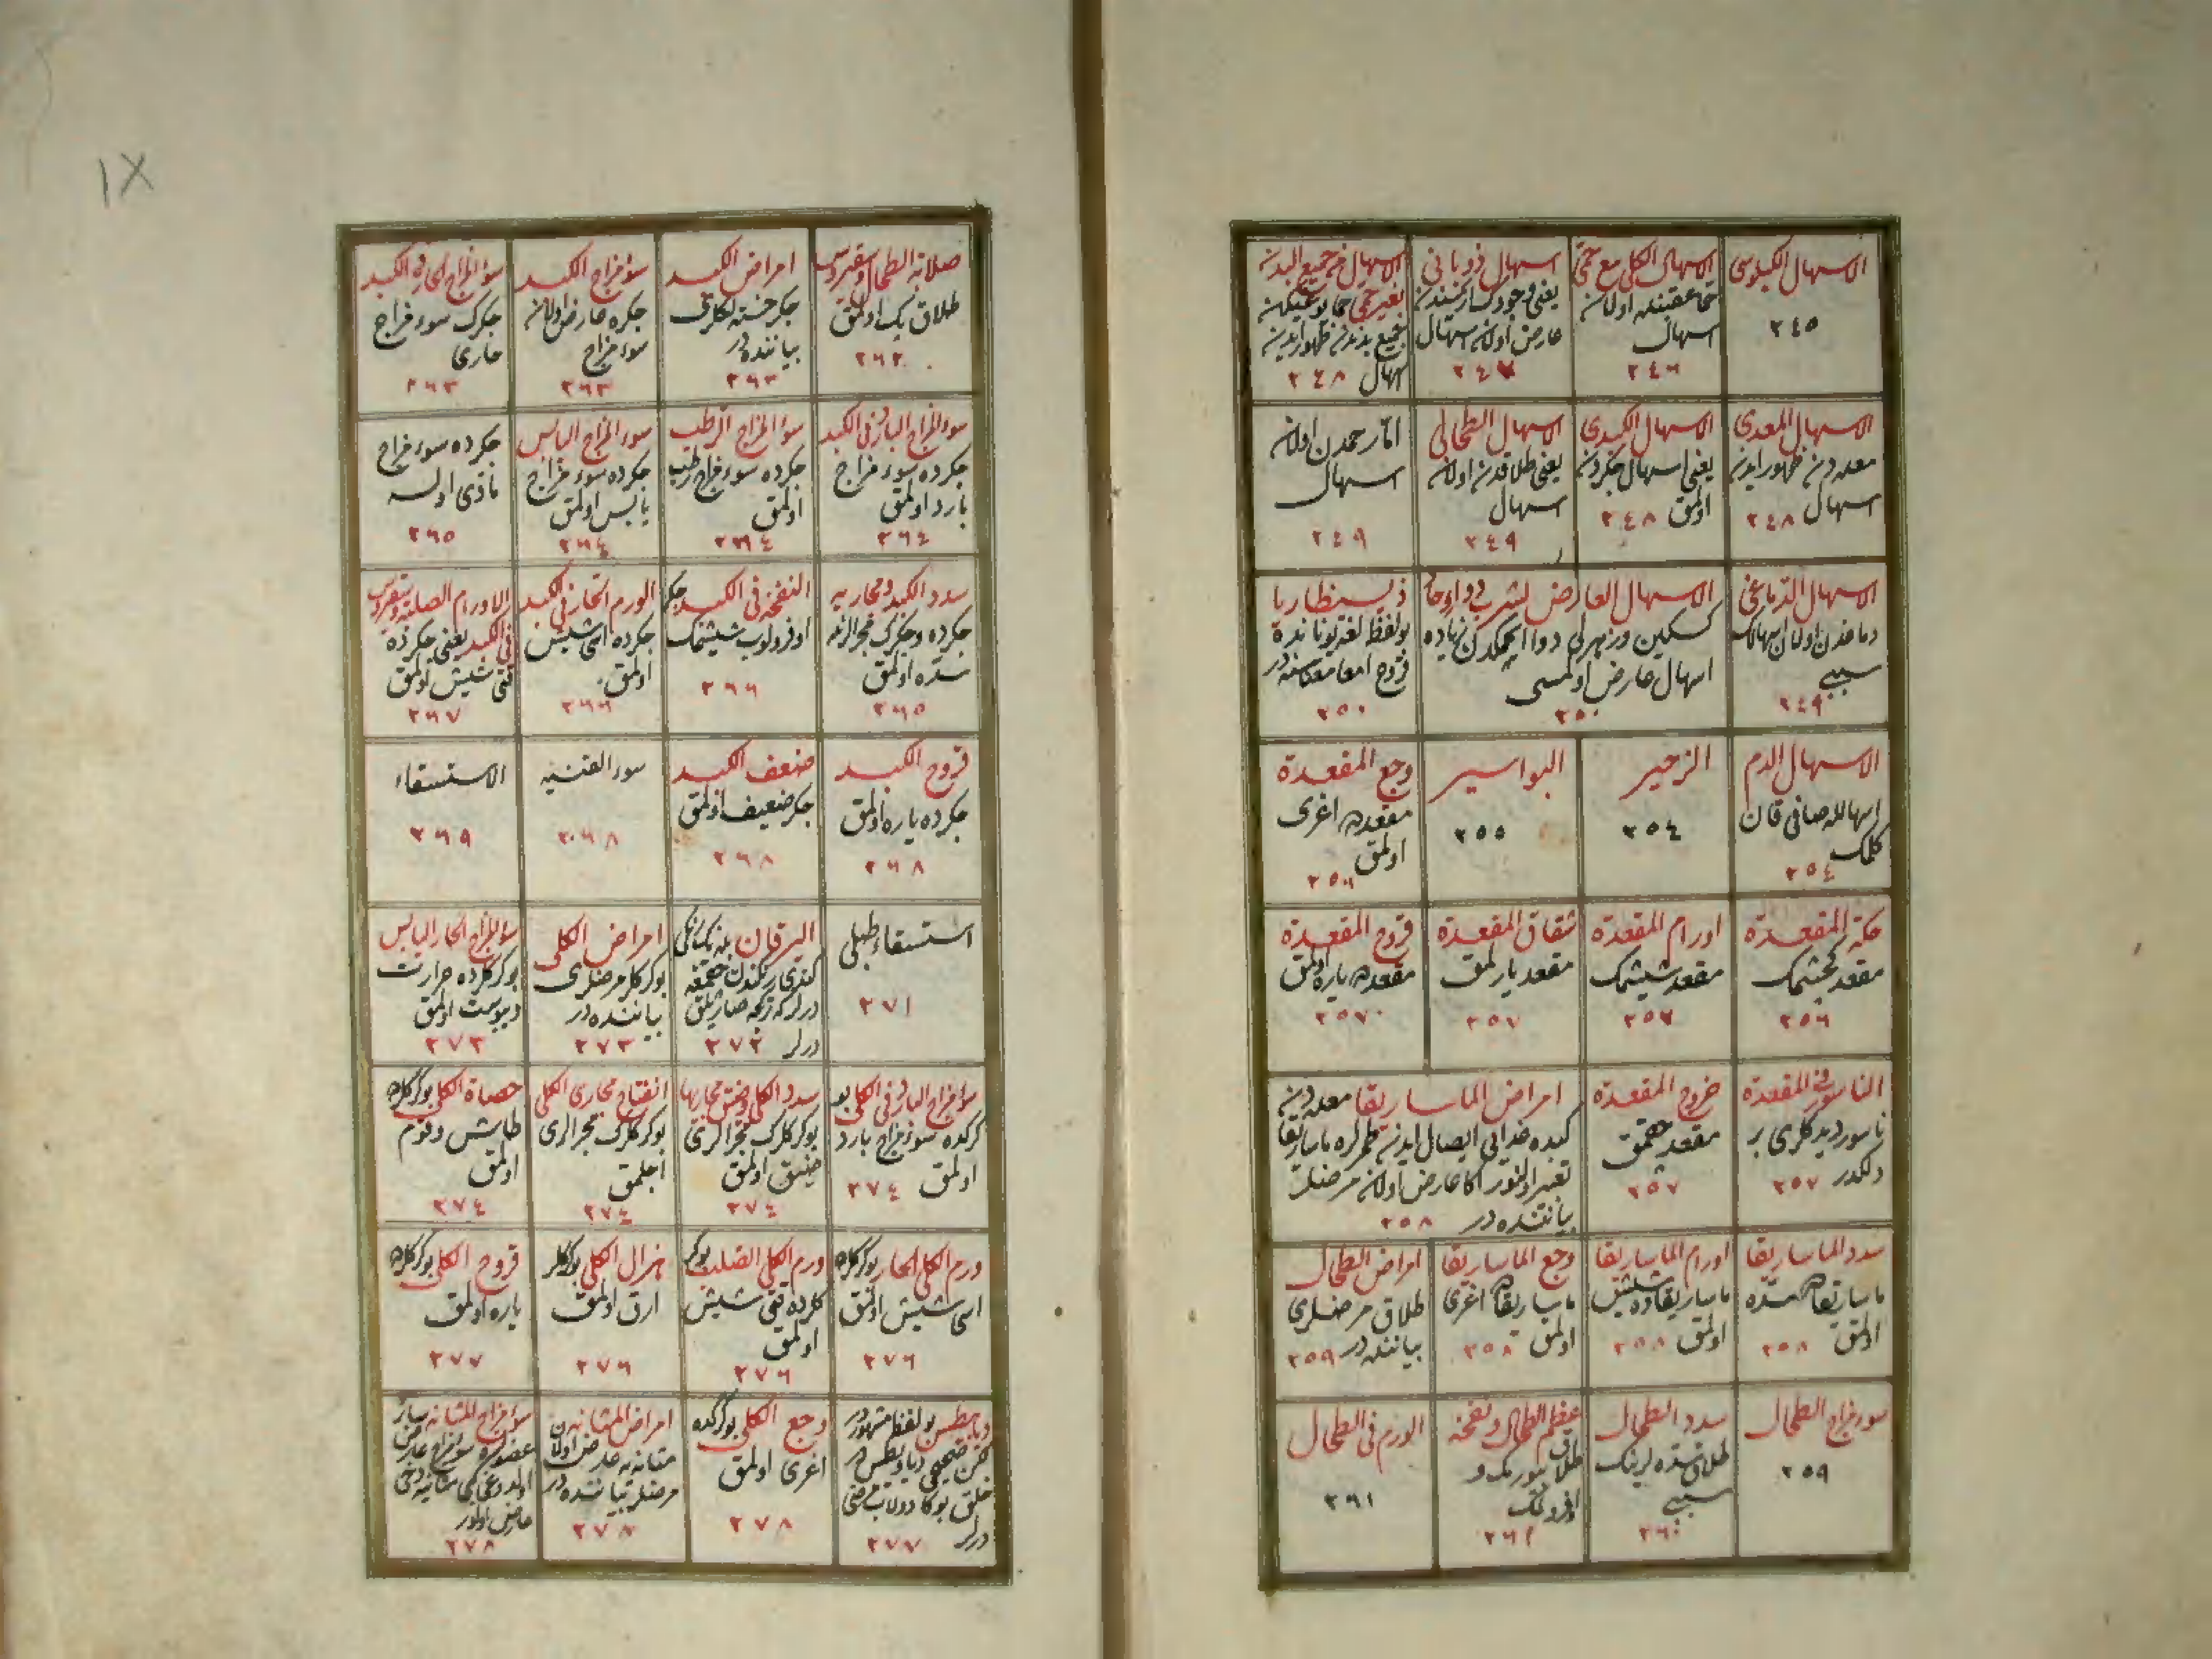 الاسهال الكيلوسى
٢٤٥
الاسهال الكلى مع حمى
حمى عقبنده اولان
اسهال
٢٤٦
اسهال ذوبانى
يعنى وجودك اريمسندن
عارض اولان اسهال
٢٤٧
الاسهال من جميع البدن
بغير حمى حمى يوغيكن
جميع بدندن ظهور ايدن
اسهال ٢٤٨
الاسهال المعدى
معده دن ظهور ايدن
اسهال ٢٤٨
الاسهال الكبدى
يعنى اسهال جكردن
اولمق ٢٤٨
الاسهال الطحالى
يعنى طلاقدن اولان
اسهال
٢٤٩
اولان
اسهال
٢٤٩
الاسهال الدماغى
دماغدن اولان اسهالك
سببى
٢٤٩
الاسهال العارض لشرب دواء حاد
كسكين و زهرلى دوا ايچمكدن زياده
اسهال عارض اولمسى
٢٥٠
ذيسنطاريا
بو لفظ لغة يوناندن
قروح امعا معناسنه در
٢٥٠
الاسهال الدم
اسهالله صافى قان
كلمك
٢٥٤
الزحير
٢٥٤
البواسير
٢٥٥
وجع المقعدة
مقعده اغرى
اولمق
٢٥٦
حكة المقعدة
مقعد كجشمك
٢٥٦
اورام المقعدة
مقعد شيشمك
٢٥٧
شقاق المقعدة
مقعد يارلمق
٢٥٧
قروح المقعدة
مقعده ياره اولمق
٢٥٧
الناسور فى المقعدة
ناسور ديدكلرى بر
دلكدر ٢٥٧
خروج المقعدة
مقعد چقمق
٢٥٧
امراض الماساريقا معده دن
كبده غدايى ايصال ايدن طمرلره ماساريقا
تعبير اولنور اكا عارض اولان مرضلر
بياننده در ٢٥٨
سدد الماساريقا
ماساريقاده سده
اولمق ٢٥٨
اورام الماساريقا
ماساريقاده شيش
اولمق ٢٥٨
وجع الماساريقا
ماساريقاده اغرى
اولمق ٢٥٨
امراض الطحال
طلاق مرضلرى
بياننده در ٢٥٩
سوء مزاج الطحال
٢٥٩
سدد الطحال
طلاق سده لرينك
سببى
٢٦٠
عظم الطحال و نفخه
طلاق بيومك و
اوفورلمك
٢٦١
الورم فى الطحال
٢٦١
صلابة الطحال و سقيروس
طلاق پك اولمق
٢٦٢
امراض الكبد
جكر خسته لكلرى
بياننده در
٢٦٣
سوء مزاج الكبد
جكره عارض اولان
سوء مزاج
٢٦٣
سوء المزاج الحار فى الكبد
جكرك سوء مزاج
حارى
٢٦٣
سوء المزاج البارد فى الكبد
جكرده سوء مزاج
بارد اولمق
٢٦٤
سوء المزاج الرطب
جكرده سوء مزاج رطب
اولمق
٢٦٤
سوء المزاج اليابس
جكرده سوء مزاج
يابس اولمق
٢٦٤
جكرده سوء مزاج
مادى اولسه
٢٦٥
سدد الكبد و مجاريه
جكرده و جكرك مجرالرنده
سده اولمق
٢٦٥
النفخة فى الكبد جكر
اوفورلوب شيشمك
٢٦٦
الورم الحار فى الكبد
جكرده اسى شيش
اولمق
٢٦٦
الاورام الصلبة و سقيروس
فى الكبد يعنى جكرده
قتى شيش اولمق
٢٦٧
قروح الكبد
جكرده ياره اولمق
٢٦٨
ضعف الكبد
جكر ضعيف اولمق
٢٦٨
سوء القنيه
٢٦٨
الاستسقاء
٢٦٩
استسقاء طبلى
٢٧١
اليرقان
كندى رنكندن چقمغه
ديرلر كه تركجه صاريلق
ديرلر ٢٧٢
امراض الكلى
بوكركلر مرضلرى
بياننده در
٢٧٣
سوء المزاج الحار اليابس
بوكركلرده حرارت
و يبوست اولمق
٢٧٣
سوء مزاج البارد فى الكلى بو
كركده سوء مزاج بارد
اولمق ٢٧٤
سدد الكلى و ضيق مجاريها
بوكركلرك مجرالرى
ضيق اولمق
٢٧٤
انفتاح مجارى الكلى
بوكركلرك مجرالرى
اچلمق
٢٧٤
حصاة الكلى بوكركلرده
طاش و قوم
اولمق
٢٧٤
ورم الكلى الحار بوكركلرده
اسى شيش اولمق
٢٧٦
ورم الكلى الصلب بوكر
كلرده قتى شيش
اولمق
٢٧٦
هزال الكلى بوكركلر
ارق اولمق
٢٧٦
قروح الكلى بوكركلرده
ياره اولمق
٢٧٧
ديابيطس بو لفظ مشهوردر
لكن صحيحى ديابيطس در
خلق بوكا دولاب مرضى
ديرلر ٢٧٧
وجع الكلى بوكركده
اغرى اولمق
٢٧٨
امراض المثانه
مثانه يه عارض اولان
مرضلر بياننده در
٢٧٨
سوء مزاج المثانه سائر
عضولره سوء مزاج عارض
اولدوغى كبى مثانيه دخى
عارض اولور
٢٧٨